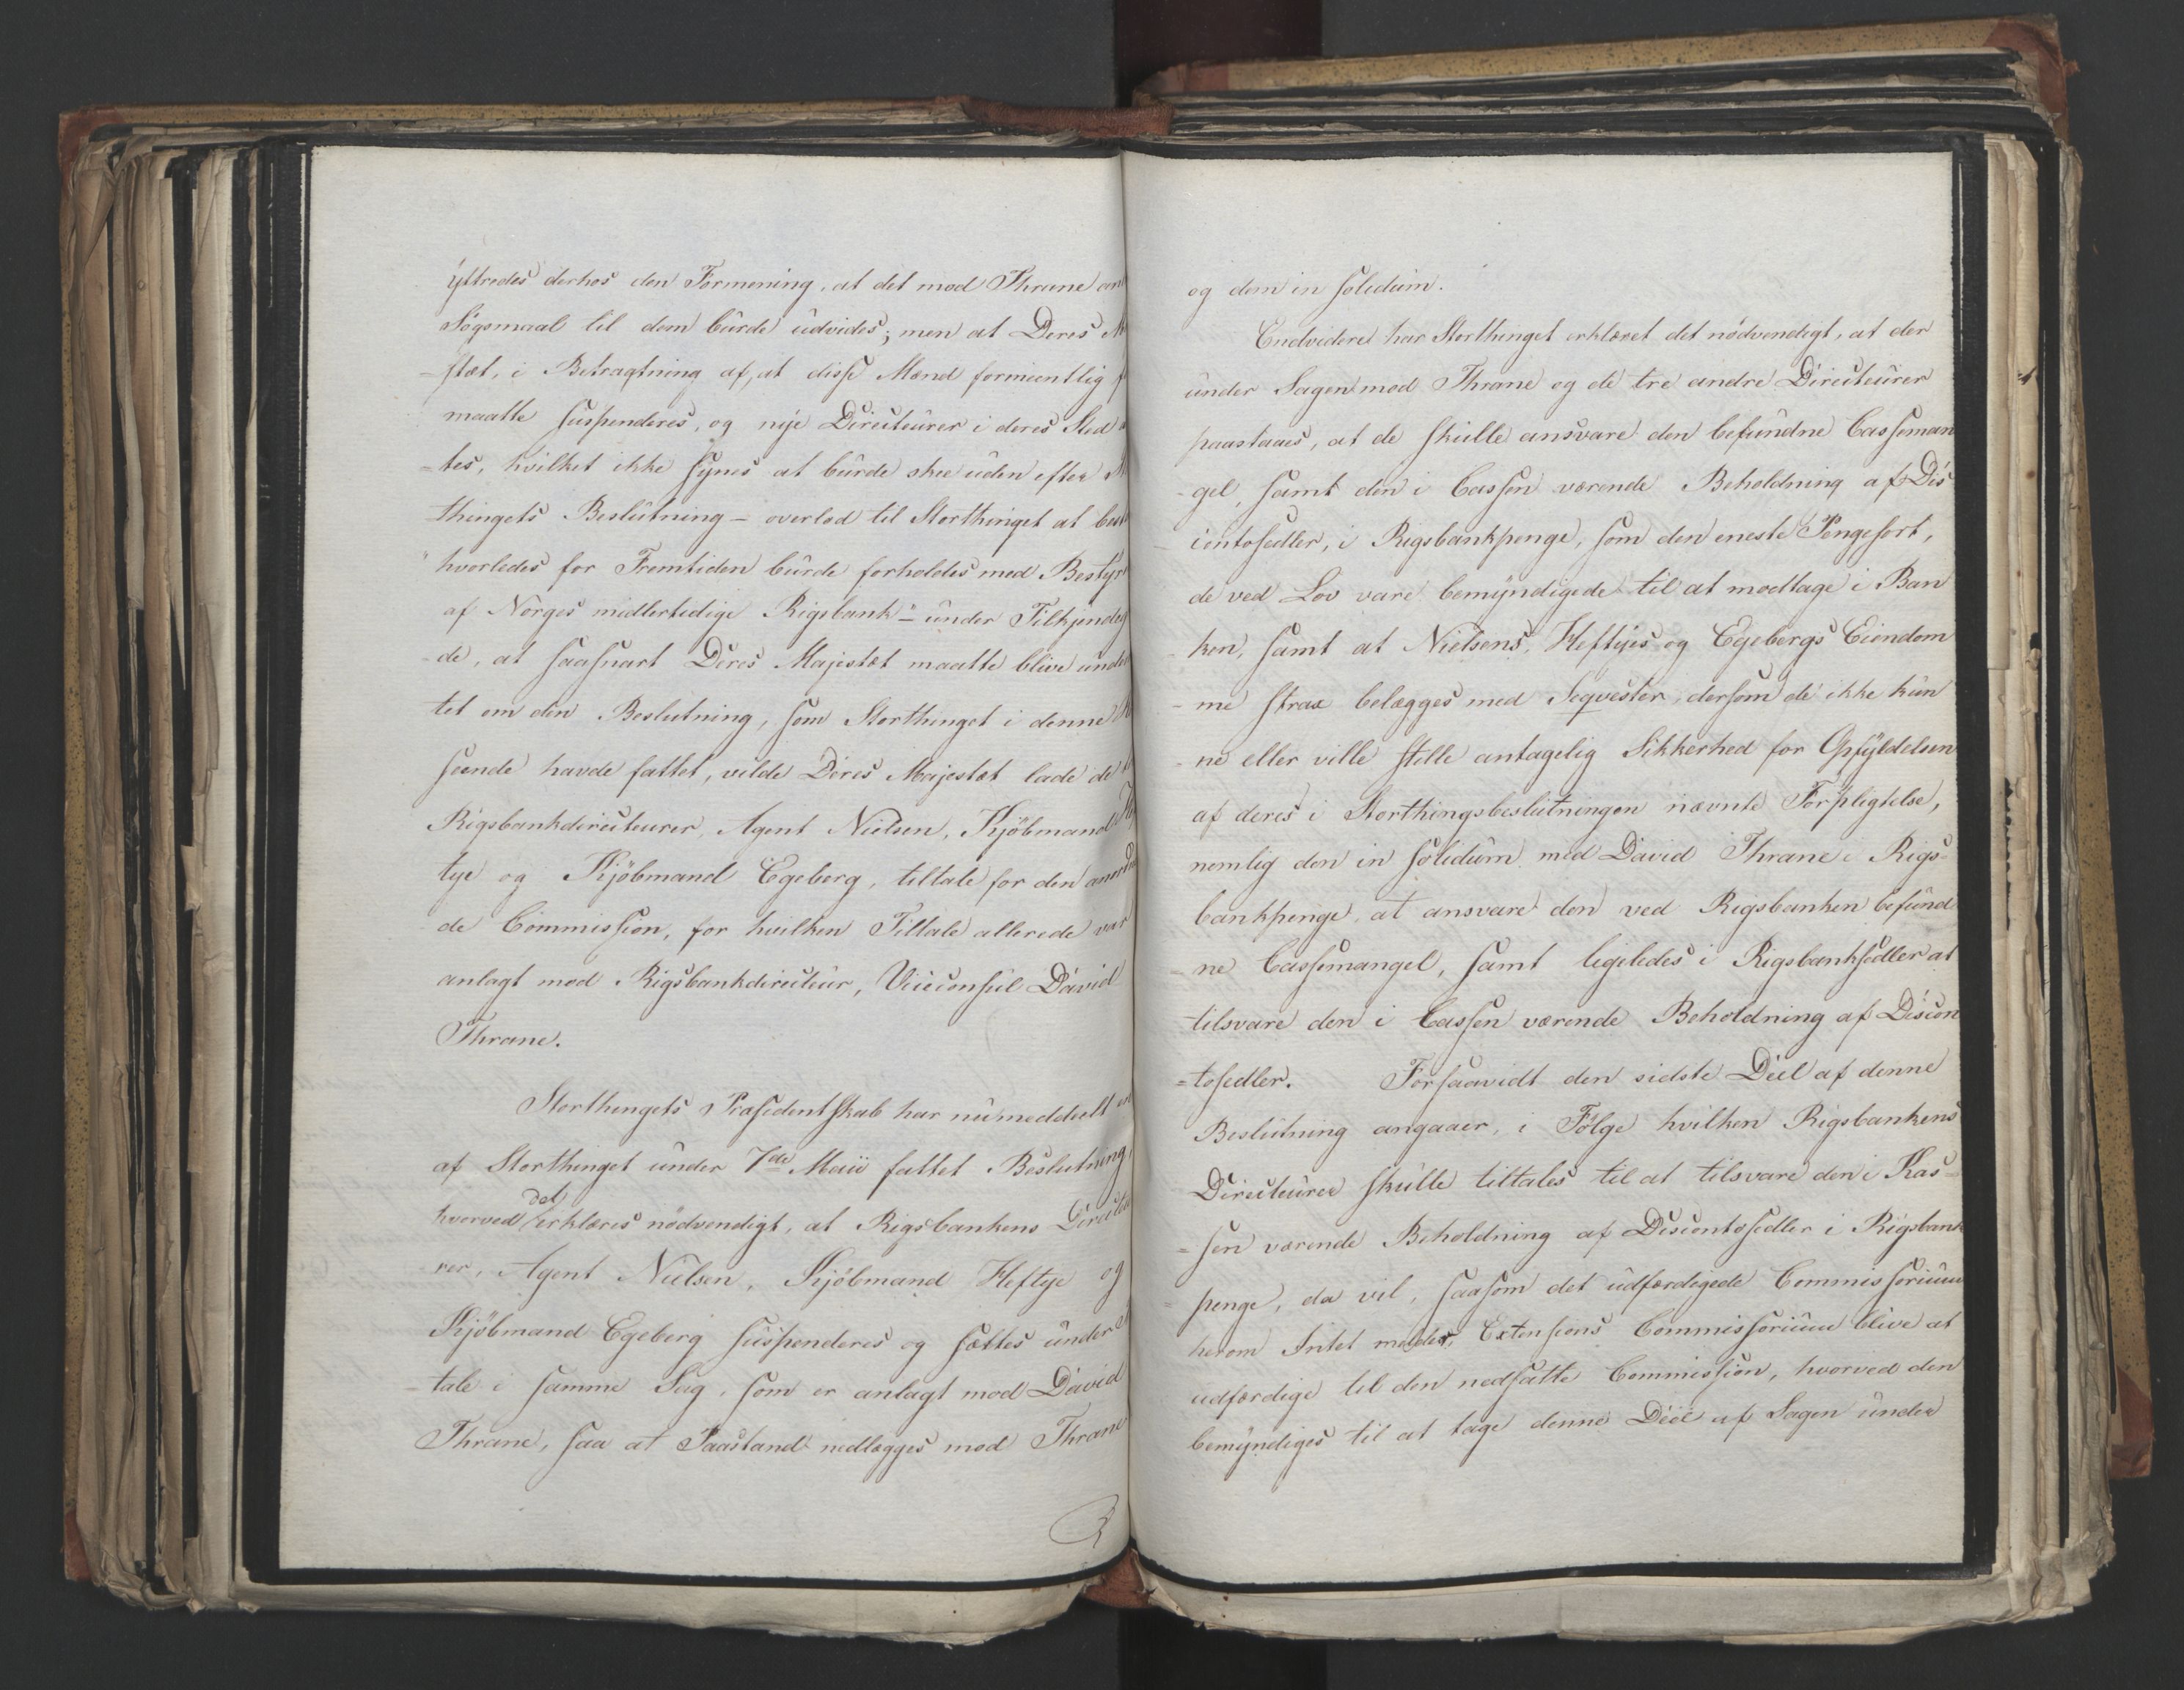 yttredes derhos den Formening, at det mod Thrane an
Søgsmaal til dem burde udvides; men at Deres M
-stæt, i Betragtning af, at disse Mænd formeentlig f
maatte suspenderes, og nye Directeurer i deres Sted
-tes, hvilket ikke synes at burde skee uden efter
thingets Beslutning – overlod til Storthinget at best
"hvorledes for Fremtiden burde forholdes med Bestyr
af Norges midlertidige Rigsbank" – under Tilkjendeg
-de, at saasnart Deres Majestæt maatte blive under
tet om den Beslutning, som Storthinget i denne
seende havde fattet, vilde Deres Majestæt lade de
Rigsbankdirecteurer, Agent Nielsen, Kjøbmand Hef
tye og Kjøbmand Egeberg, tiltale for den anord
de Commission, for hvilken Tiltale allerede var
anlagt mod Rigsbankdirecteur, Viceconsul David
Thrane.
Storthingets Præsidentskab har nu meddeelt en
af Storthinget under 7de Maii fattet Beslutning,
hvorved det erklæres nødvendigt, at Rigsbankens Directeu
rer, Agent Nielsen, Kjøbmand Heftye og
Kjøbmand Egeberg suspenderes og sættes under
tale i samme Sag, som er anlagt mod David
Thrane, saa at Paastand nedlægges mod Thrane
og dem in solidum.
Endvidere har Storthinget erklæret det nødvendigt, at der
under Sagen mod Thrane og de tre andre Directeurer
paastaaes, at de skulle ansvare den befundne Casseman
-gel, samt den i Cassen værende Beholdning af Dis
contosedler, i Rigsbankpenge, som den eneste Pengesort,
de ved Lov vare bemyndigede til at modtage i Ban
-ken, samt at Nielsens, Heftyes og Egebergs Eiendom
-me strax belægges med Seqvester, dersom de ikke kun
-ne eller ville stille antagelig Sikkerhed for Opfyldelsen
af deres i Storthingsbeslutningen nævnte Forpligtelse,
nemlig den in solidum med David Thrane i Rigs-
bankpenge at ansvare den ved Rigsbanken befund
-ne Cassemangel, samt ligeledes i Rigsbanksedler at
tilsvare den i Cassen værende Beholdning af Discon
=tosedler. Forsaavidt den sidste Deel af denne
Beslutning angaaer, i Følge hvilken Rigsbankens
Directeurer skulle tiltales til at tilsvare den i Kas-
=sen værende Beholdning af Discontosedler i Rigsbank
penge, da vil, saasom det udfærdigede Commissorium
herom Intet melder, Extensions Commissorium blive at
udfærdige til den nedsatte Commission, hvorved den
bemyndiges til at tage denne Deel af Sagen under